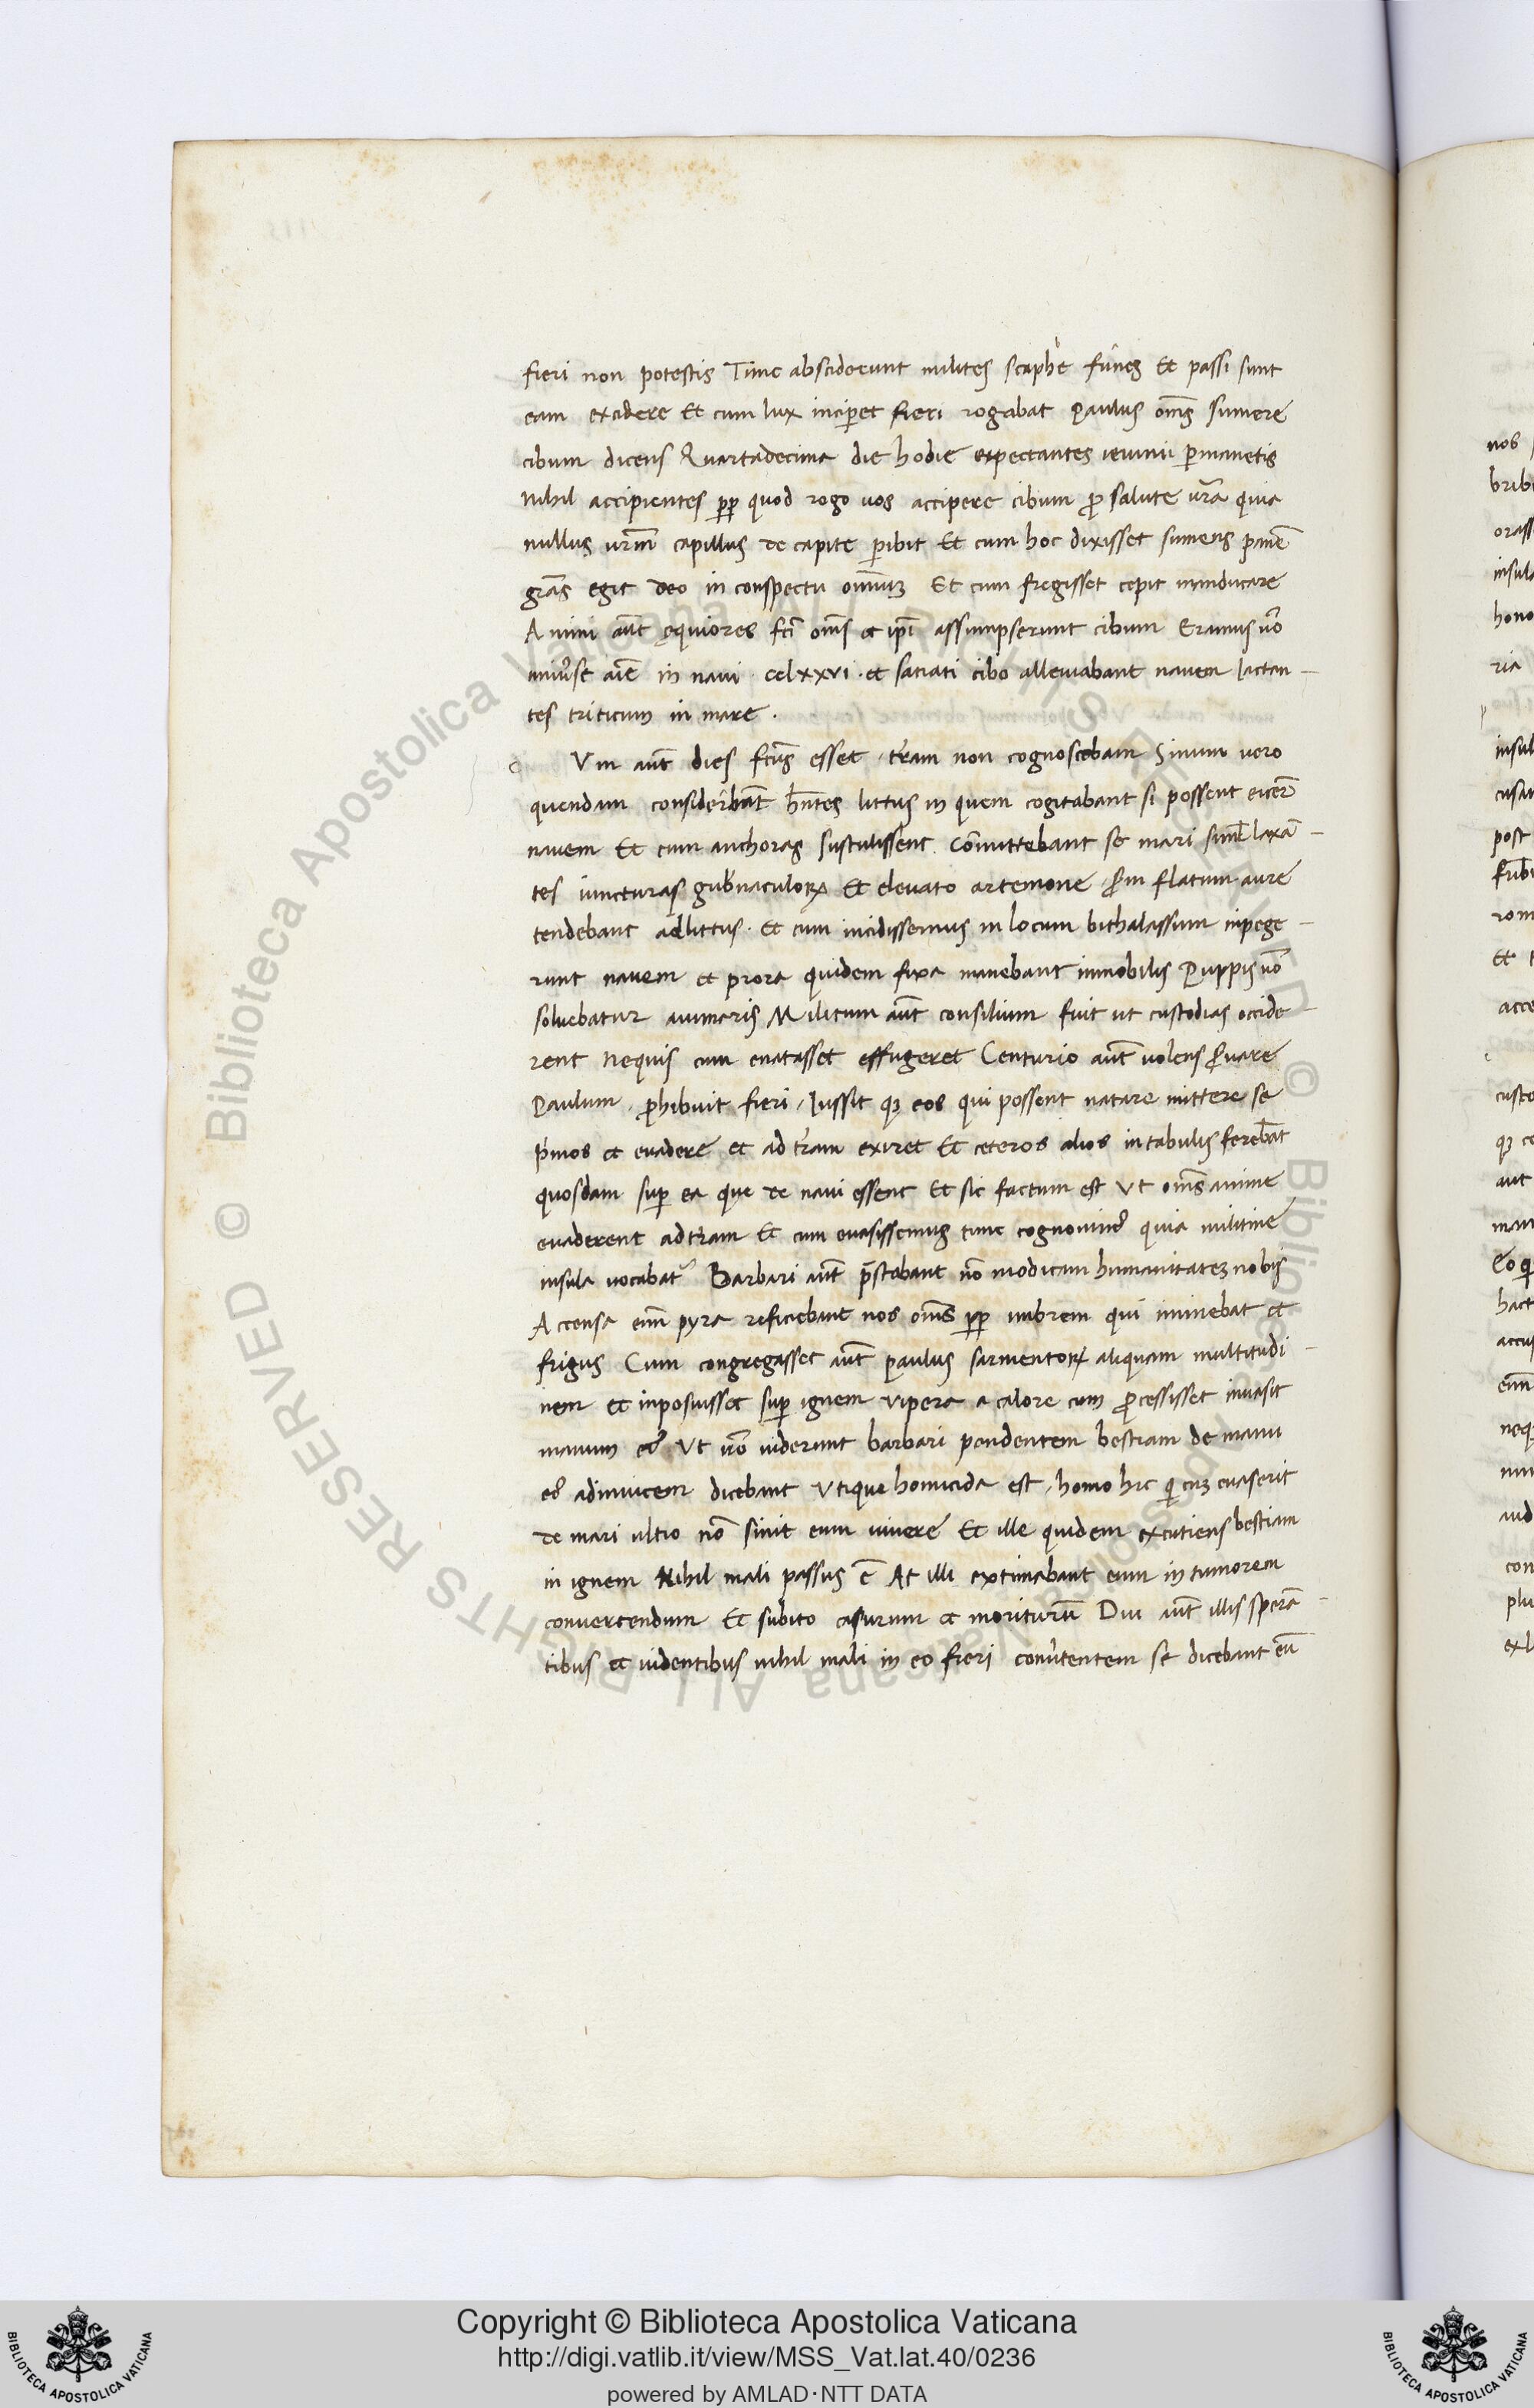 fieri non potestis Tunc absciderunt milites scaphe funes Et passi sunt
eam excidere Et cum lux inciperet fieri rogabat Paulus om̄s sumere
cibum dicens Quartadecima die hodie expectantes ieiunii ꝑmanetis
nihil accipientes ꝓꝑ quod rogo uos accipere cibum ꝓ salute ur̄a quia
nullus ur̄m capillus de capite ꝑibit Et cum hoc dixisset sumens panē
gr̄as egit deo in conspectu omniuꝫ Et cum fregisset cepit manducare
Animi aūt ęquiores fc̄i om̄s et ip̄i assumpserunt cibum Eramus ūo
uniūse aīe in naui · cclxxvi · et satiati cibo alleuiabant nauem Iactan-
tes triticum in mare .
c Vm aūt dies fc̄us esset · tr̄am non cognoscebam Sinum uero
quendam considerabāt hn̄tes littus in quem cogitabant si possent eicerē
nauem Et cum anchoras sustulissent com̄ittebant se mari simul laxā-
tes iuncturas gub̄naculoꝝ Et eleuato artemone ꝓm flatum aure
tendebant ad littus · Et cum incidissemus in locum bithalassum inpege-
runt nauem et prora quidem fixa manebant inmobilis Puppis ūo
soluebatur aiumaris Militum aūt consilium fuit ut custodias occide-
rent Nequis cum enatasset effugeret Centurio aūt uolens ꝓuare
Paulum · ꝓhibuit fieri · Iussit qꝫ eos qui possent natare mittere se
p̄mos et euadere et ad tr̄am exiret Et ceteros alios in tabulis ferebāt
quosdam suꝑ ea que de naui essent Et sic factum est Vt om̄s anime
euaderent ad tr̄am Et cum euasissemus tunc cognouimꝰ quia militine
insula uocabat᷑ Barbari aūt p̄stabant nō modicam humanitateꝫ nobis
Accensa enī pyra reficiebant nos om̄s ꝓꝑ imbrem qui iminebat et
frigus Cum congregasset aūt paulus sarmentoꝝ aliquam multitudi-
nem et inposuisset suꝑ ignem vipera a calore cum ꝓcessisset inuasit
manum eꝰ Vt ūo uiderunt barbari pendentem bestiam de manu
eꝰ adinuicem dicebant Vtique homicida est · homo hic qi cuꝫ euaserit
de mari ultio nō sinit eum uiuere Et ille quidem excutiens bestiam
in ignem Nihil mali passus ē At illi extimabant eum in tumorem
conuertendum Et subito casurum et moriturū Diu aūt illis sperā-
tibus et uidentibus nihil mali in eo fieri conūtentem se dicebant eū
Copyright © Biblioteca Apostolica Vaticana
http://digi.vatlib.it/view/MSS_Vat.lat.40/0236
powered by AMLAD·NTT DATA
BIBLIOTECA APOSTOLICA VATICANA
BIBLIOTECA APOSTOLICA VATICANA
© Biblioteca Apostolica Vaticana ALL RIGHTS RESERVED © Biblioteca Apostolica Vaticana ALL RIGHTS RESERVED